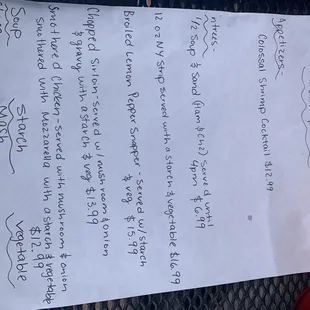 Appetizers-
Colossal Shrimp Cocktail $12.99
ntrees-
1/2 Sap & Sand (Ham & Chz) served until
4pm $6.99
12 oz NY Strip served with a starch & vegetable $16.99
Broiled Lemon Pepper Snapper - served w/ starch
& veg $15.99
Chopped Sirloin - served w/ mushroom & onion
& gravy with a starch & veg $13.99
Smothered Chicken - served with mushroom & onion
smothered with Mozzarella with a starch & vegetable
$12.99
Soup
Starch
Mash
Vegetable